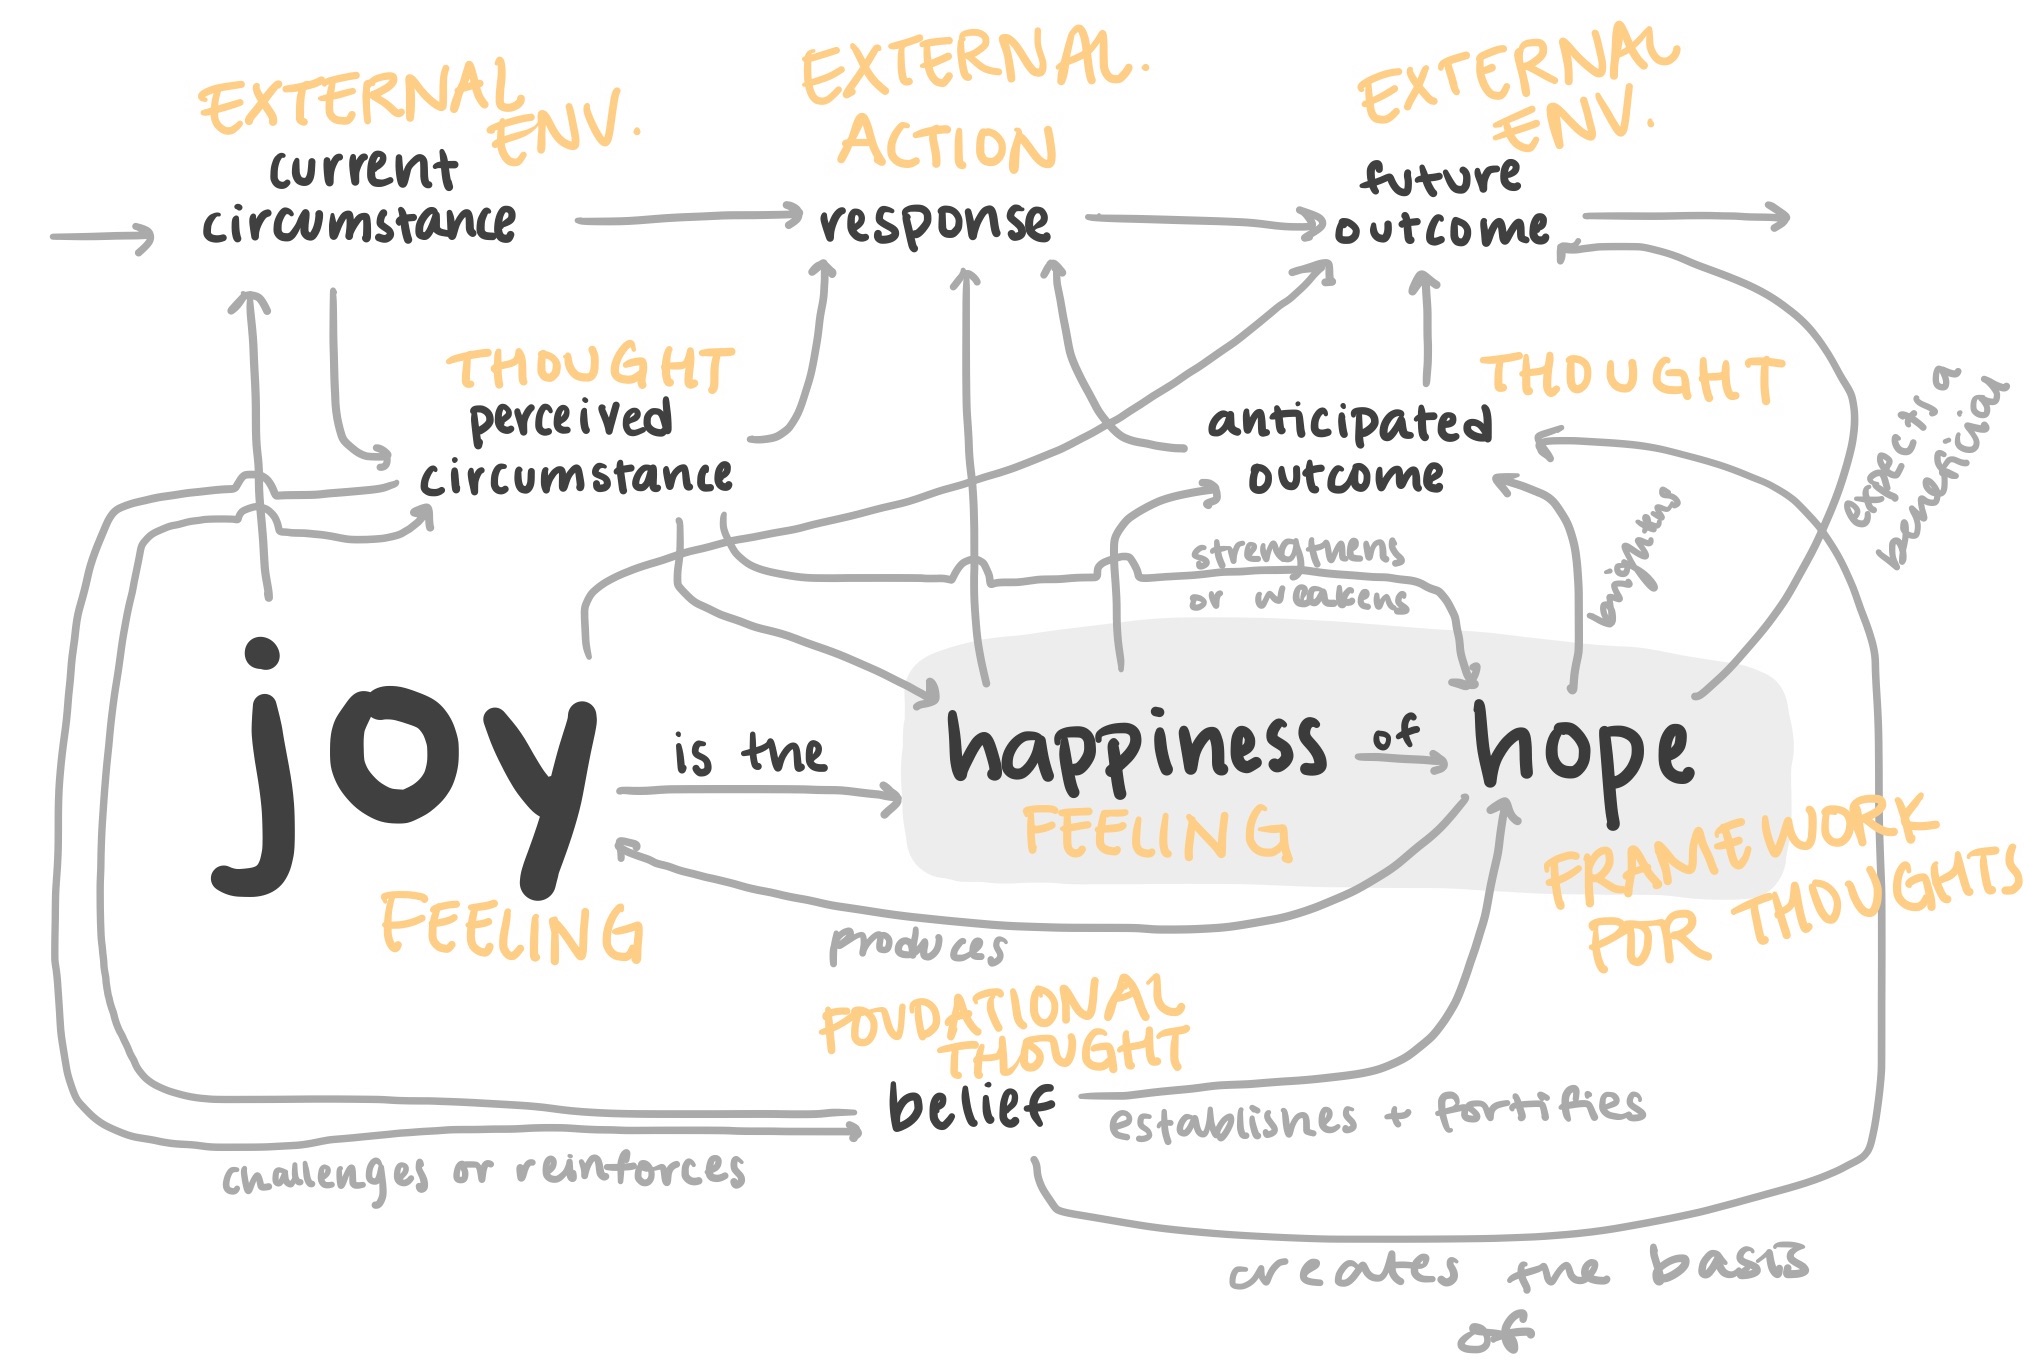 EXTERNAL
ENV.
current
circumstance
EXTERNAL.
ACTION
response
EXTERNAL
ENV.
future
outcome
THOUGHT
perceived
circumstance
THOUGHT
anticipated
outcome
expects a
beneficial
brightens
strengthens
or weakens
joy
is the
happiness
of
hope
FEELING
FEELING
FRAMEWORK
FOR THOUGHTS
produces
FOUDATIONAL
THOUGHT
belief
establishes + fortifies
challenges or reinforces
creates the basis
of